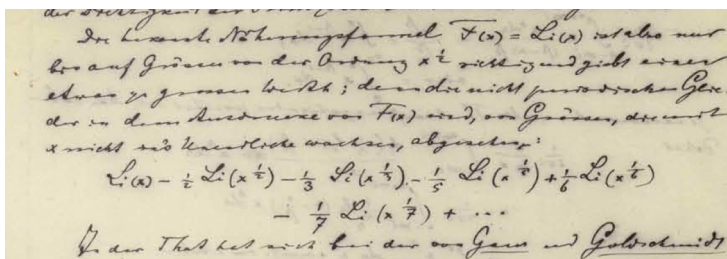 der Dichtigkeit der
Die bekannte Näherungsformel F(x) = Li(x) ist also nur
bis auf Grössen von der Ordnung x^½ richtig und giebt einen
etwas zu grossen Werth; denn die nicht periodischen Glie
der in dem Ausdrucke von F(x) sind, von Grössen, die mit
x nicht in's Unendliche wachsen, abgesehen:
Li(x) − ½ Li(x^½) − ⅓ Li(x^⅓) − ⅕ Li(x^⅕) + ⅙ Li(x^⅙)
− 1/7 Li(x^1/7) + ...
In der That hat sich bei der von Gauss und Goldschmidt